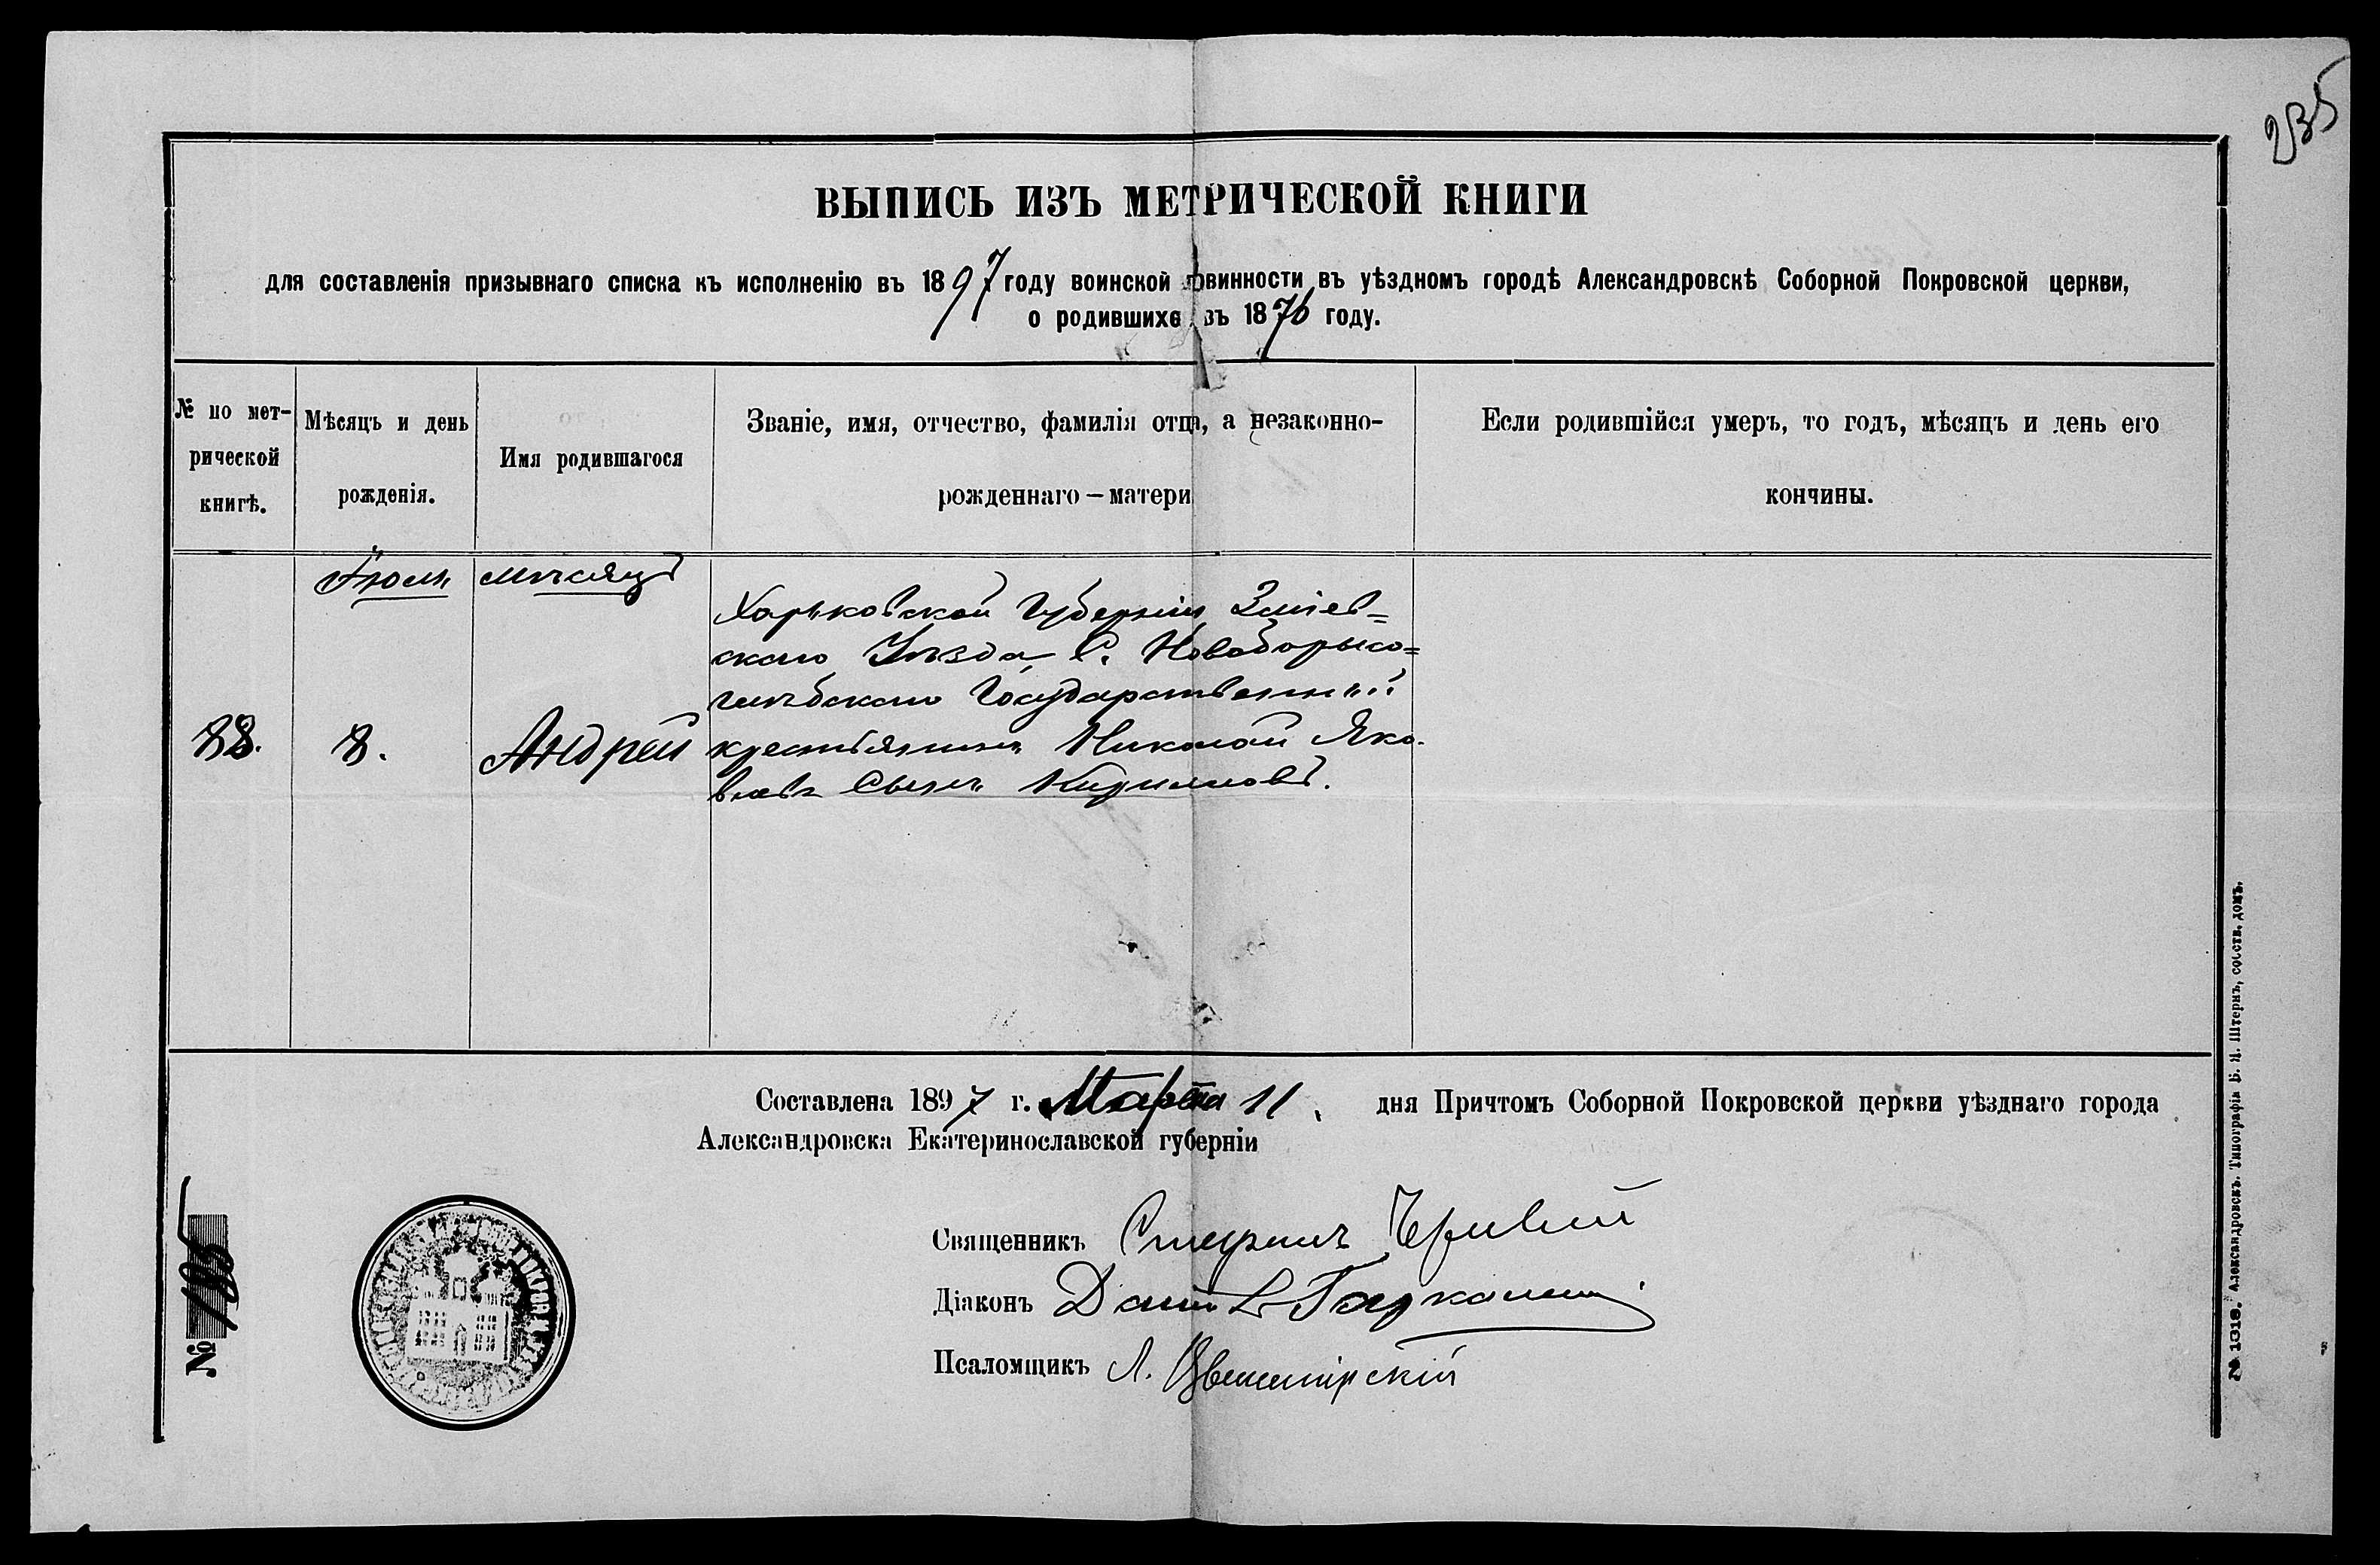 235
ВЫПИСЬ ИЗЪ МЕТРИЧЕСКОЙ КНИГИ
для составленія призывнаго списка къ исполненію въ 1897 году воинской повинности въ уѣздномъ городѣ Александровскѣ Соборной Покровской церкви,
о родившихся въ 1876 году.
№ по мет-
рической
книгѣ.
Мѣсяцъ и день
рожденія.
Имя родившагося
Званіе, имя, отчество, фамилія отца, а незаконно-
рожденнаго — матери
Если родившійся умеръ, то годъ, мѣсяцъ и день его
кончины.
мѣсяцъ
Харьковской Губерніи Зміев=
скаго Уѣзда С. Новоборисо=
глѣбскаго Государственный
88. 8. Андрей крестьянинъ Николай Яко-
влевъ Сынъ Кирилловъ.
Составлена 1897 г. Марта 11. дня Причтомъ Соборной Покровской церкви уѣзднаго города
Александровска Екатеринославской губерніи
Священникъ
Діаконъ
Псаломщикъ Л.
№ 185
№ 1318. Александровскъ. Типографія Б. Я. Штернъ, собств. домъ.